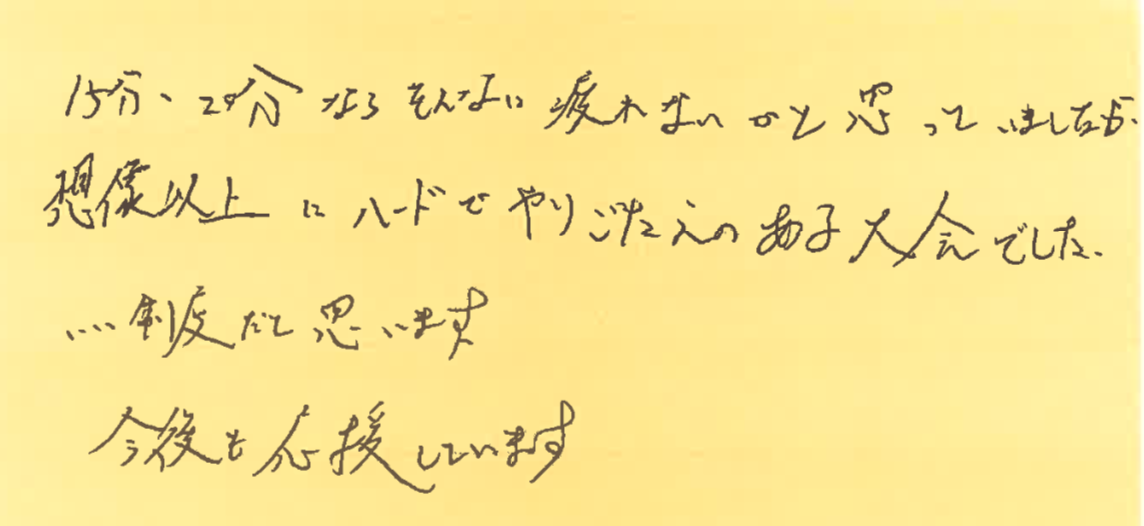 15分、20分ならそんなに疲れないかと思っていましたが、
想像以上にハードでやりごたえのある大会でした。
いい制度だと思います
今後も応援しています